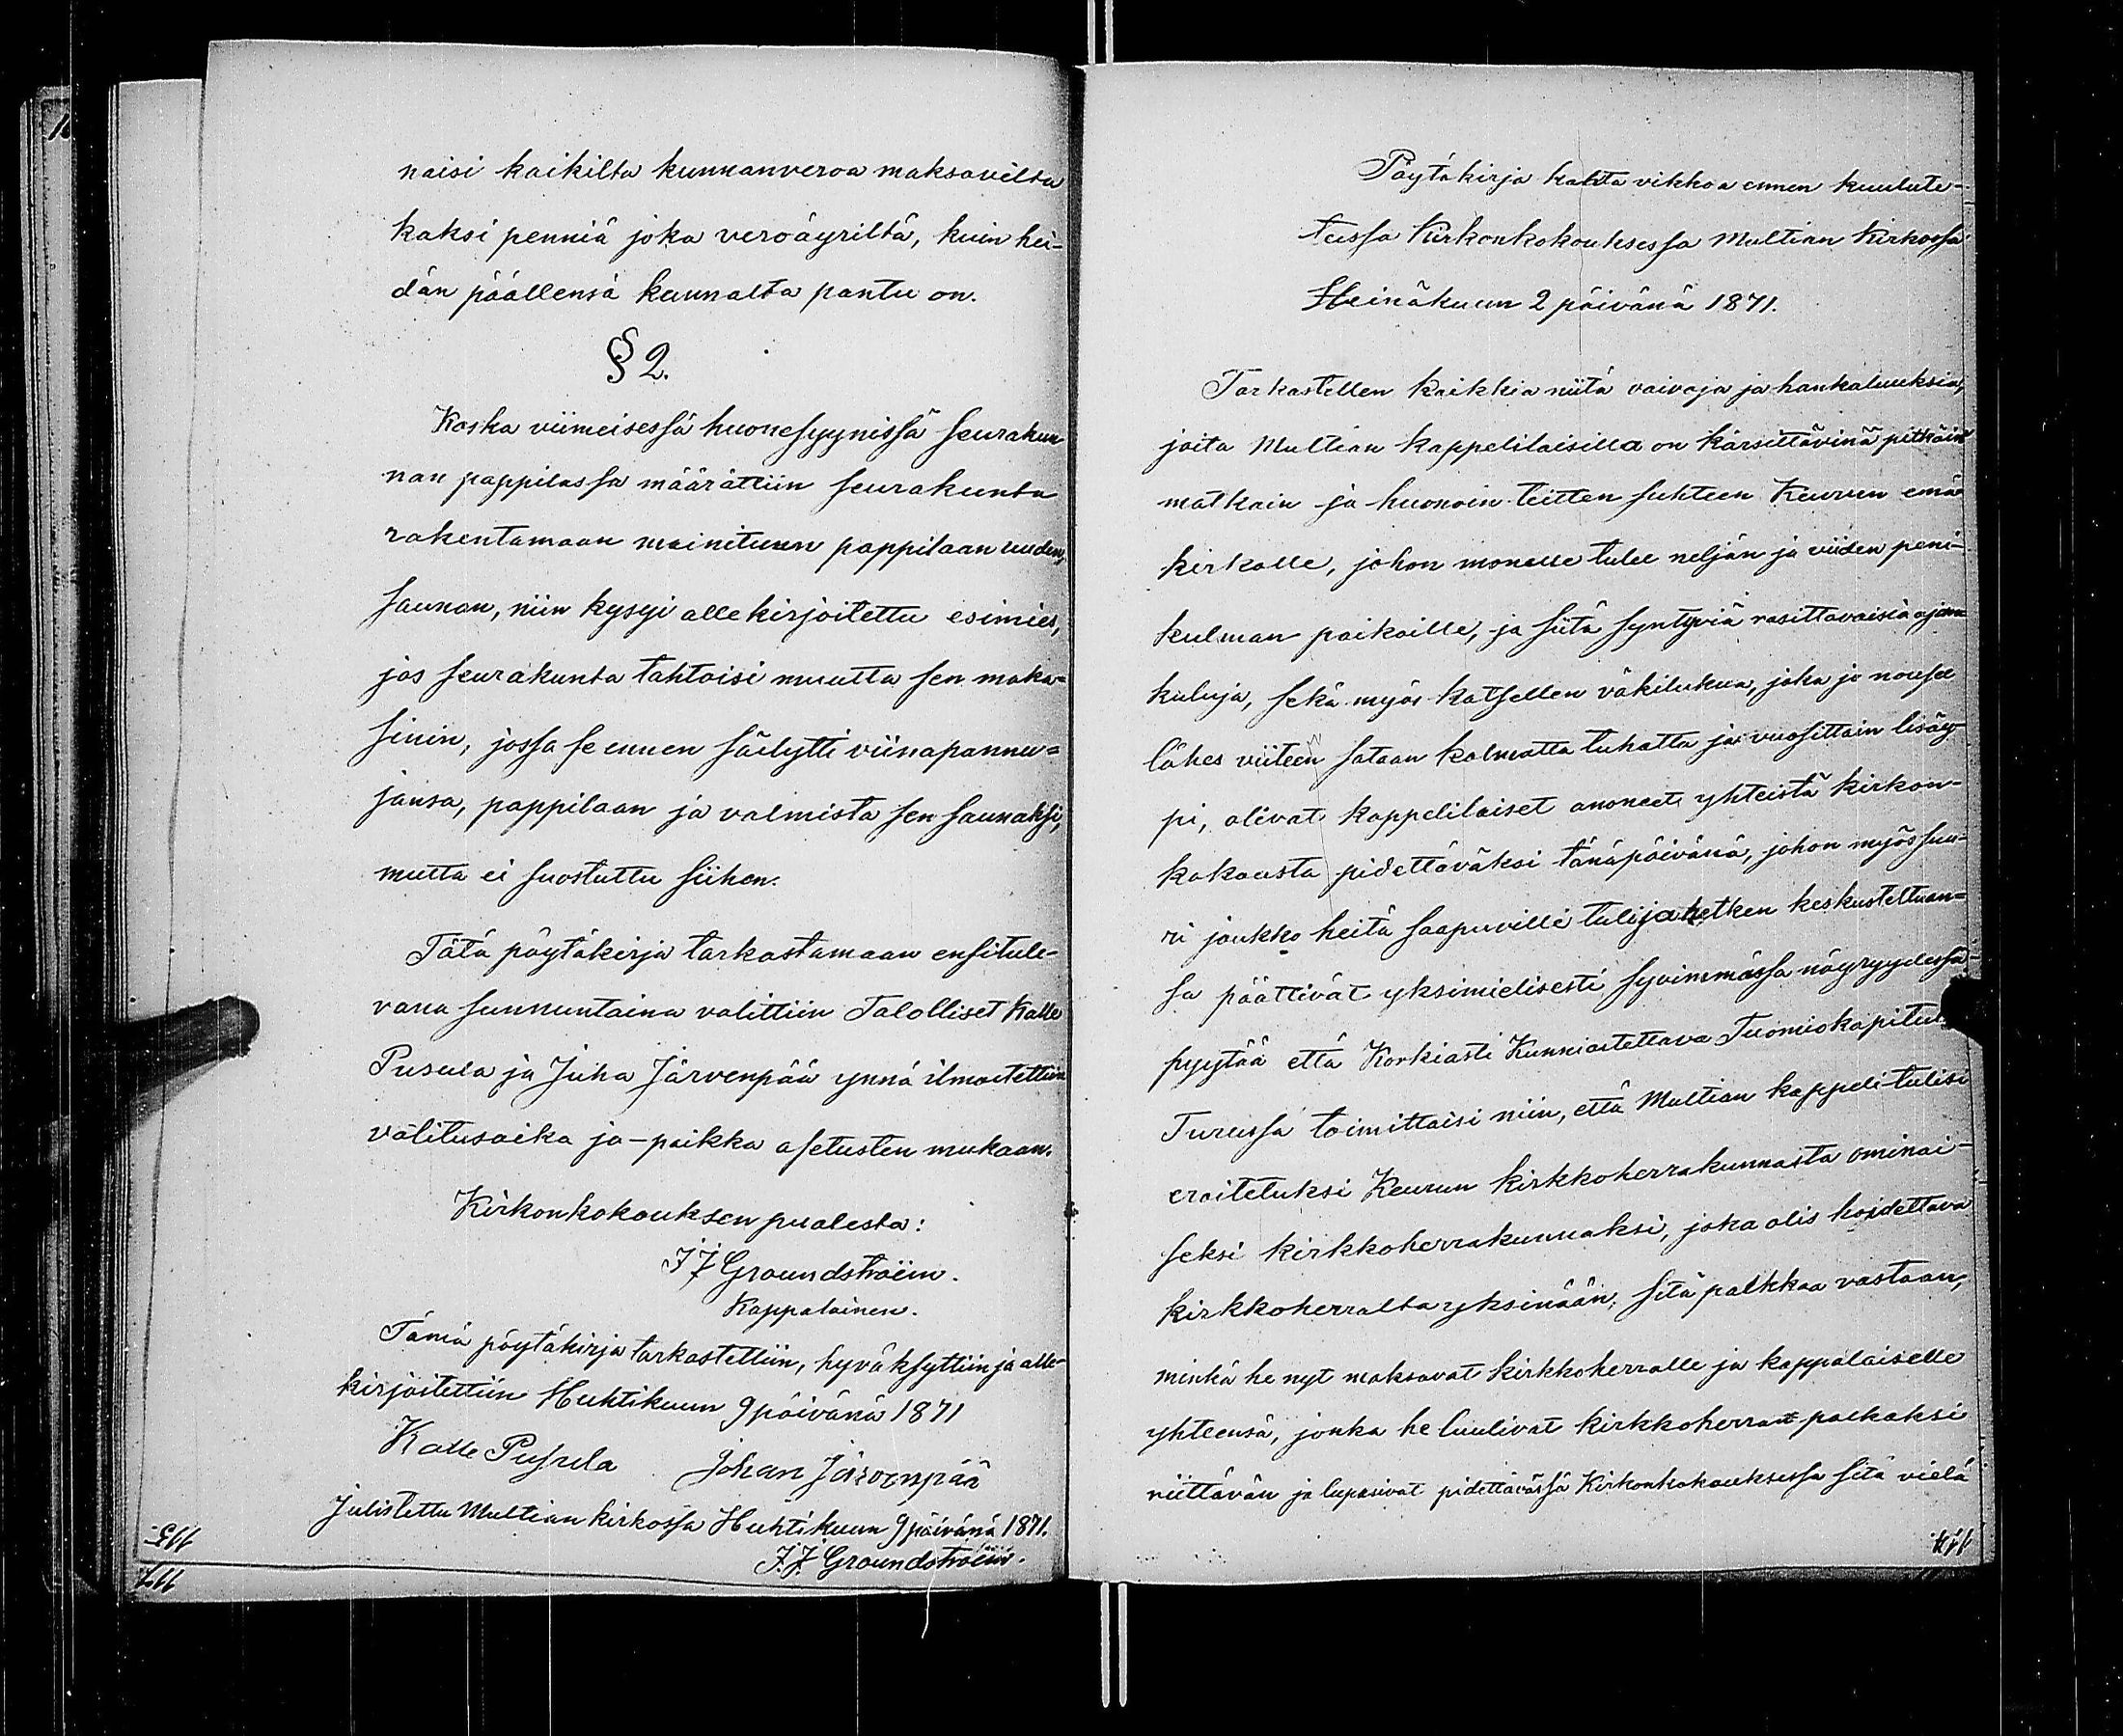 naisi kaikilta kunnanveroa maksavilta
kaksi penniä joka veroäyriltä, kuin hei-
dän päällensä kunnalta pantu on.
§ 2.
Koska viimeisessä huonesyynissä seurakun
nan pappilassa määrättiin seurakunta
rakentamaan mainituun pappilaan uuden,
saunan, niin kysyi allekirjoitettu esimies,
jos seurakunta tahtoisi muutta sen maka=
sinin, jossa se ennen säilytti viinapannu=
jansa, pappilaan ja valmista sen saunaksi,
mutta ei suostuttu siihen.
Tätä pöytäkirja tarkastamaan ensitule-
vana sunnuntaina valittiin Talolliset Kalle
Pusula ja Juha Järvenpää ynnä ilmoitettiin
valitusaika ja -paikka asetusten mukaan.
Kirkonkokouksen puolesta:
J J Groundstroëm.
Kappalainen.
Tämä pöytäkirja tarkastettiin, hyväksyttiin ja alle-
kirjoitettiin Huhtikuun 9 päivänä 1871
Kalle Pusula Johan Järvenpää
Julistettu Multian kirkossa Huhtikuun 9 päivänä 1871.
J. J. Groundstroëm.
Pöytäkirja kahta vikkoa ennen kuulute-
tussa Kirkonkokouksessa Multian Kirkossa
Heinäkuun 2 päivänä 1871.
Tarkastellen kaikkia niitä vaivoja ja hankaluuksia,
joita Multian kappelilaisilla on kärsittävinä pitkäin
matkain ja huonoin teitten suhteen Keuruun emä
kirkolle, johon monelle tulee neljän ja viiden peni-
kulman paikoille, ja siitä syntyviä rasittavaisia ajan
kuluja, sekä myös katsellen väkilukua, joka jo nousee
lähes viiteen sataan kolmatta tuhatta ja vuosittain lisäy-
pi, olivat kappelilaiset anoneet yhteistä kirkon-
kokousta pidettäväksi tänäpäivänä, johon myös suu-
ri joukko heitä saapuville tuli ja hetken keskusteltuan=
sa päättivät yksimielisesti syvimmässä nöyryydessä
pyytää että Korkiasti Kunnioitettava Tuomiokapituli
Turussa toimittaisi niin, että Multian kappeli tulisi
eroitetuksi Keurun kirkkoherrakunnasta ominai-
seksi kirkkoherrakunnaksi, joka olis hoidettava
kirkkoherralta yksinään, sitä palkkaa vastaan,
minkä he nyt maksavat kirkkoherralle ja kappalaiselle
yhteensä, jonka he luulivat kirkkoherran palkaksi
riittävän ja lupasivat pidettävässä Kirkonkokouksessa sitä vielä